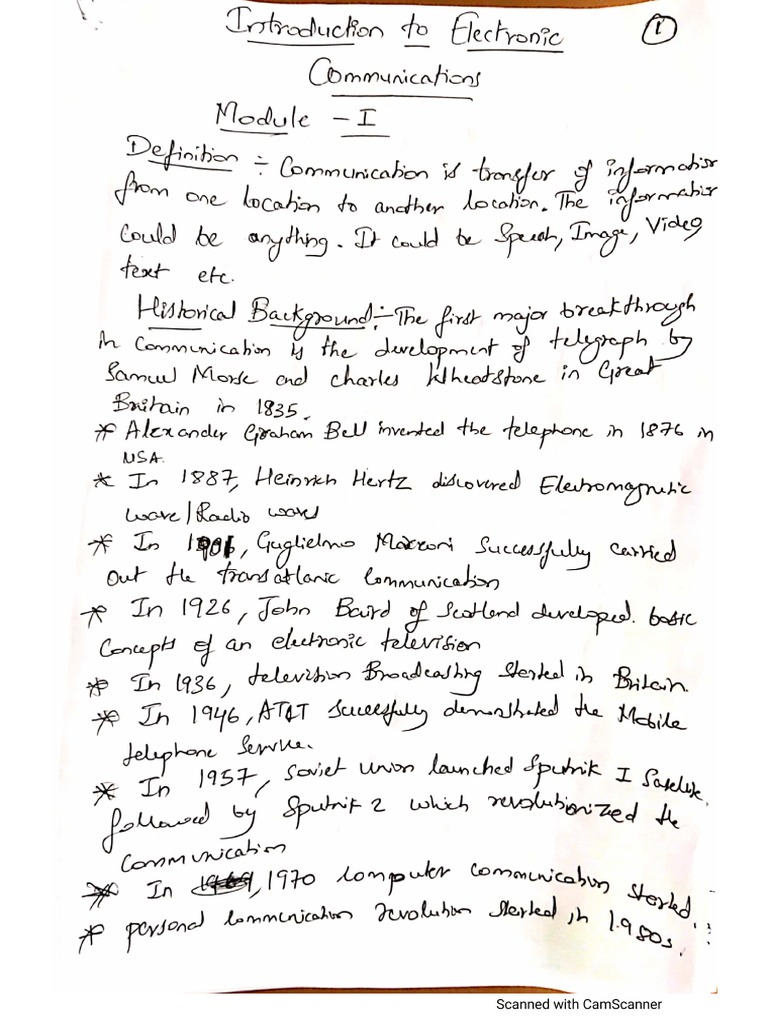 Introduction to Electronic
1
Communications
Module - I
Definition ÷ Communication is transfer of information
from one location to another location. The information
could be anything. It could be Speech, Image, Video,
text etc.
Historical Background :- The first major breakthrough
in communication is the development of telegraph by
Samuel Morse and charles Wheatstone in Great
Britain in 1835.
* Alexander Graham Bell invented the telephone in 1876 in
USA.
* In 1887, Heinrich Hertz discovered Electromagnetic
wave/Radio waves
* In 1901, Guglielmo Marconi Successfully carried
out the transatlanic Communication
* In 1926, John Baird of Scotland developed. basic
concepts of an electronic television
* In 1936, television Broadcasting started in Britain.
* In 1946, AT&T successfully demonstrated the Mobile
telephone Service.
* In 1957, soviet union launched Sputnik I Satellite.
followed by Sputnik 2 which revolutionized the
communication
* In 1970 computer communication started.
* personal communication revolution started in 1980s.
Scanned with CamScanner